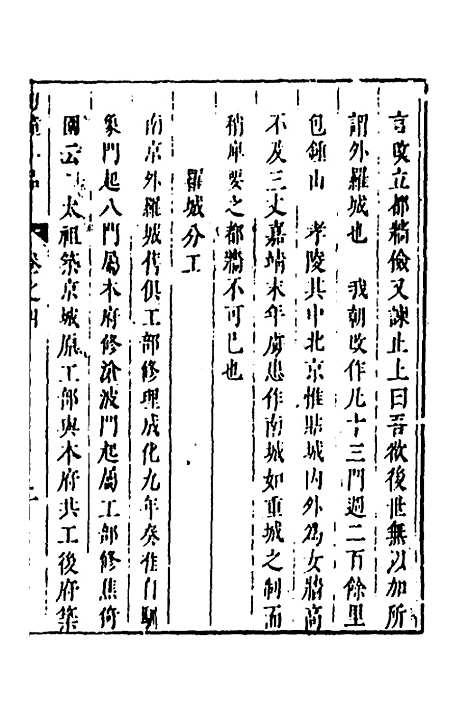 言改立都牆儉又諫止上曰吾欲後世無以加所
謂外羅城也　我朝改作凡十三門週二百餘里
包鍾山　孝陵其中北京惟貼城内外為女牆高
不及三丈嘉靖末年虜患作南城如重城之制而
稍庳要之都牆不可已也
羅城分工
南京外羅城舊俱工部修理成化九年奏准自馴
象門起八門屬本府修滄波門起屬工部修焦倚
園云　太祖築京城原工部與本府共工後府築
卷之四